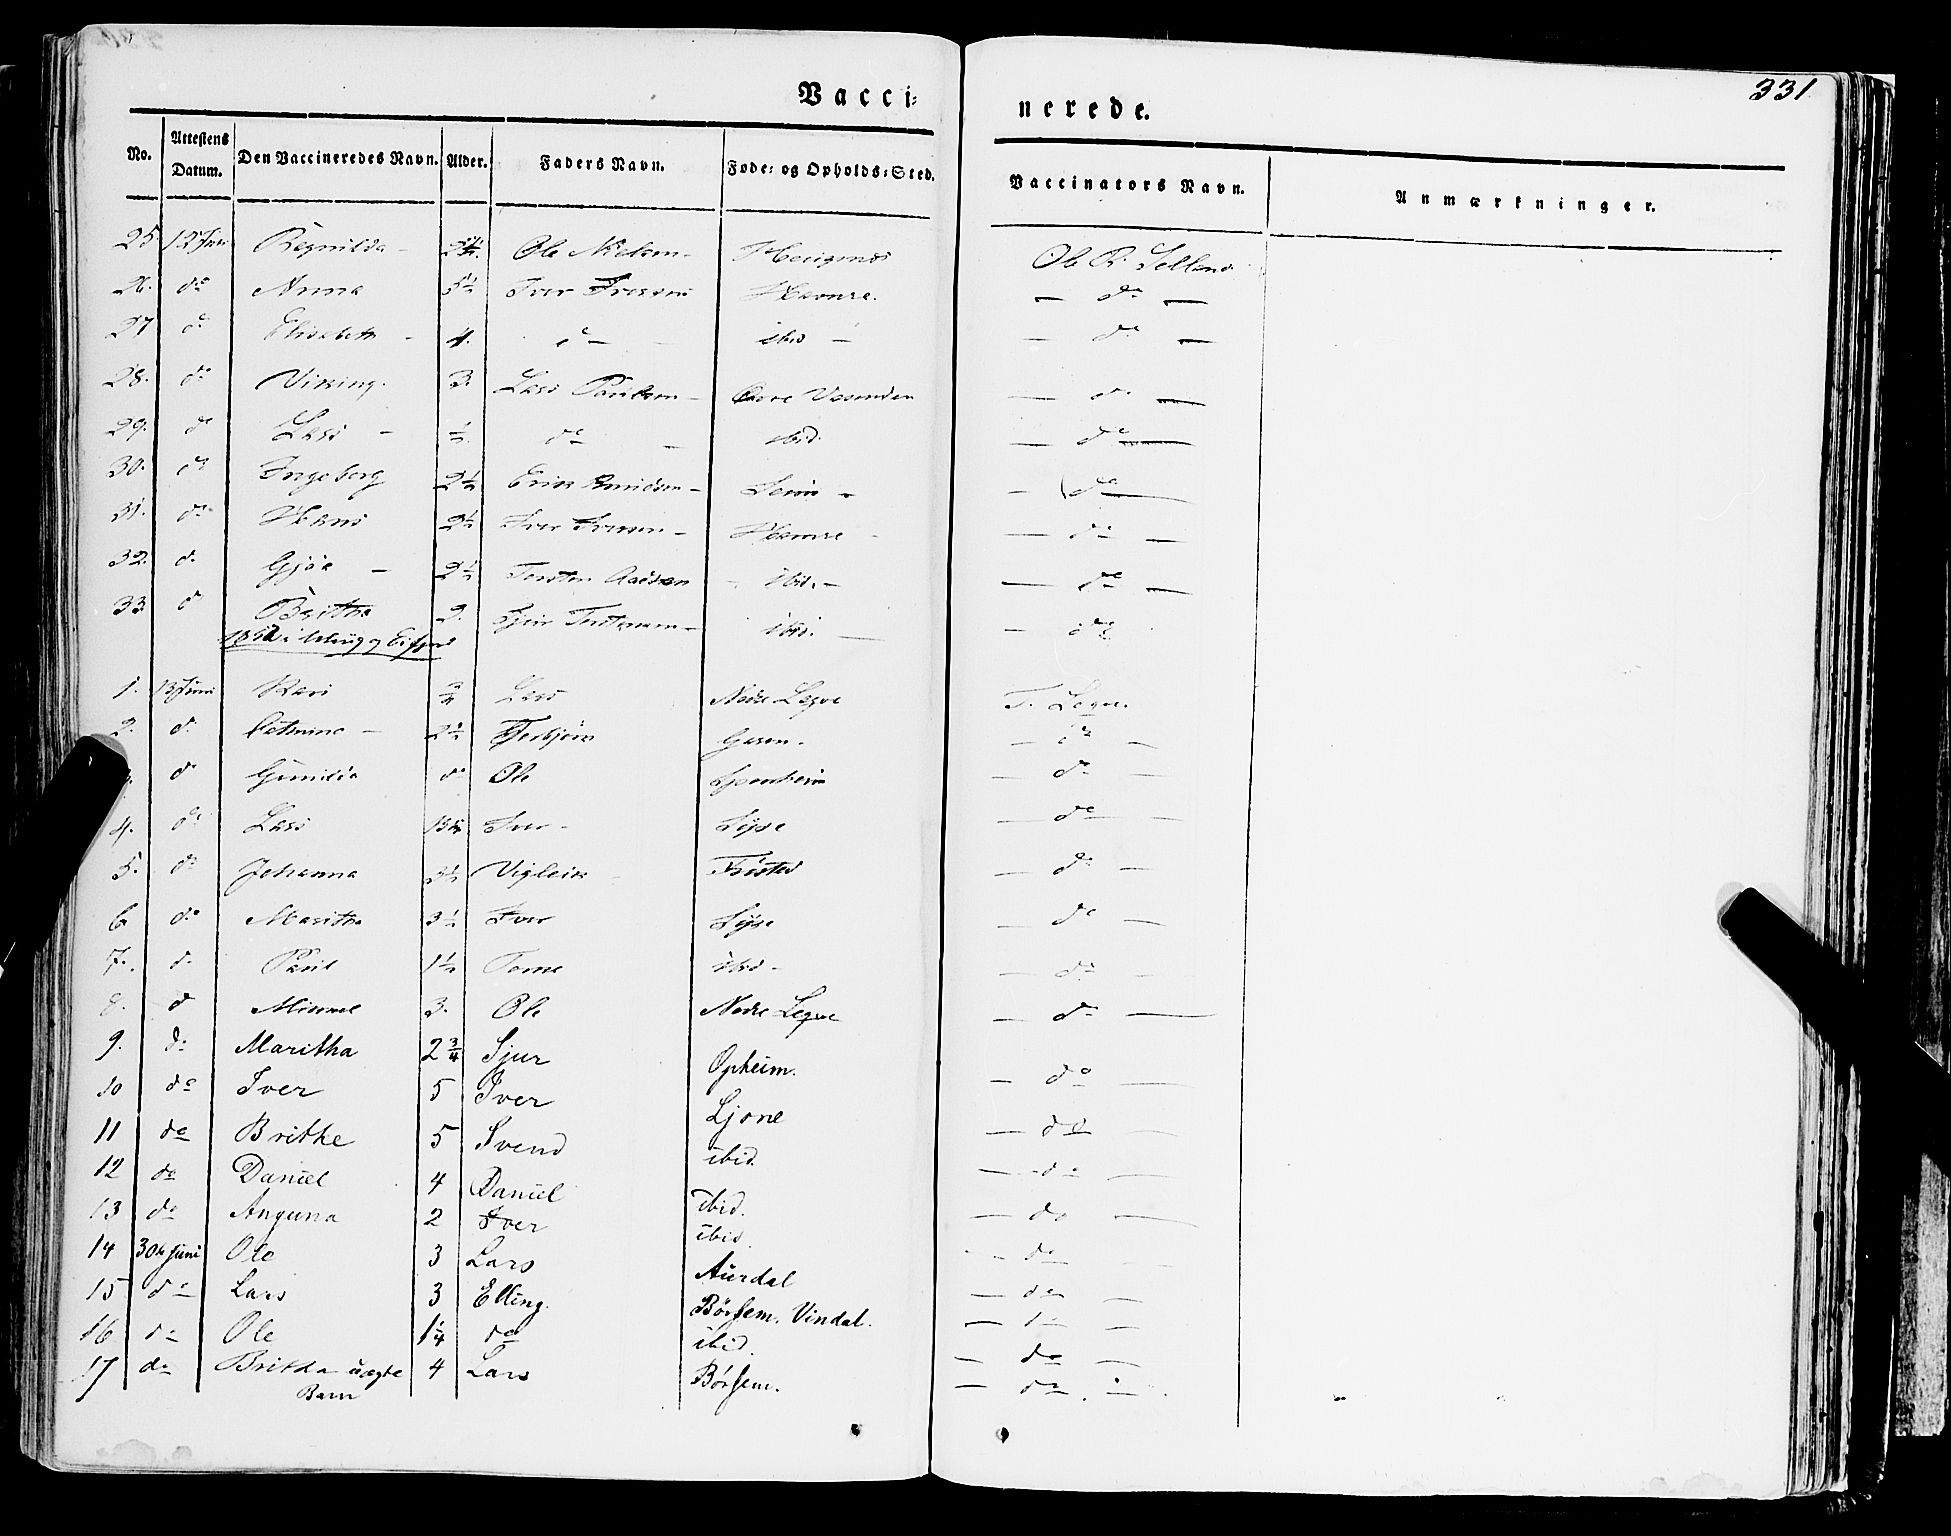 331
Vacci= nerede.
No. Attestens Datum. Den Vaccineredes Navn. Alder. Faders Navn. Føde= og Opholds=Sted. Vaccinators Navn. Anmærkninger.
25. 12 Juni Regnilda - Ole Nielsen - Ole R. Selland
26. do Anna 5½ Iver Iversen Hamre. - do -
27 do Elisabeth - 4. do - ibid - - do -
28. do Viking. 3. Lars Paulsen - - do -
29. do Lars - ½ do - ibid. - do -
30. do Ingeborg 2½ Erik - - do -
31. do Hans 2½ Iver Iversen - Hamre - - do -
32. do Gjöa - 2½ Torsten - ibid. - - do -
33. do Britha 2. Sjur - ibid. - - do
1. 13 Juni Kari Lars Nedre Legve T. Legve.
2. do - 2½ Torbjörn - do -
do Gunilda do Ole - do -
4. do Lars Iver - Lyse - do -
5. do Johanna 3½ Vigleik - - do -
6 do Maritha 3½ Iver Lyse - do -
7. do Paul 1½ Tome ibid - - do -
8. do 3. Ole Nedre Legve - do -
9. do Maritha 2¾ Sjur Opheim. - do -
10 do Iver 5 Iver Ljone - do -
11 do Brithe 5 Svend ibid. - do -
12 do Daniel 4 Daniel ibid. - do -
13 do Anguna 2 Iver ibid. - do -
14 30te Juni Ole 3 Lars Aurdal - do -
15 do Lars 3 Elling. Børsem. Vindal. - do -
16 do Ole 1¼ do ibid. - do -
17 do Britha uægte 4 Lars Børsem. - do -
Barn